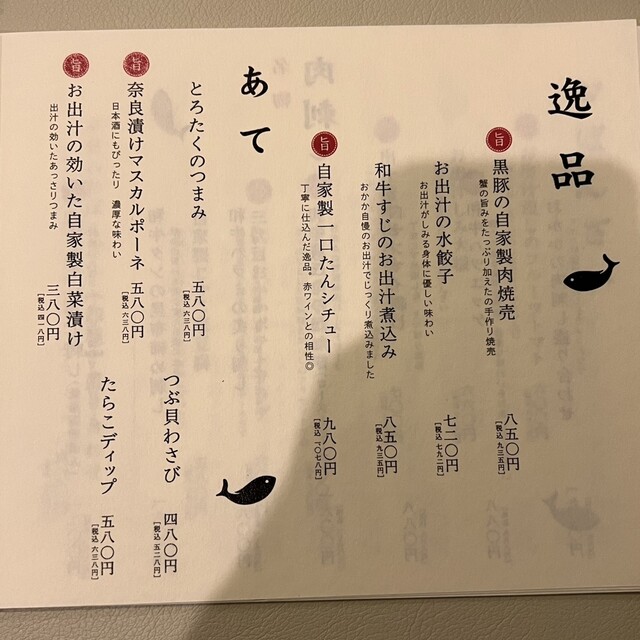 逸品
旨
黒豚の自家製肉焼売
蟹の旨みをたっぷり加えたの手作り焼売
八五〇円
[税込 九三五円]
お出汁の水餃子
お出汁がしみる身体に優しい味わい
七二〇円
[税込 七九二円]
和牛すじのお出汁煮込み
おかか自慢のお出汁でじっくり煮込みました
八五〇円
[税込 九三五円]
旨
自家製一口たんシチュー
丁寧に仕込んだ逸品。赤ワインとの相性◎
九八〇円
[税込 一〇七八円]
あて
とろたくのつまみ
五八〇円
[税込 六三八円]
つぶ貝わさび
四八〇円
[税込 五二八円]
旨
奈良漬けマスカルポーネ
日本酒にもぴったり 濃厚な味わい
五八〇円
[税込 六三八円]
たらこディップ
五八〇円
[税込 六三八円]
旨
お出汁の効いた自家製白菜漬け
出汁の効いたあっさりつまみ
三八〇円
[税込 四一八円]